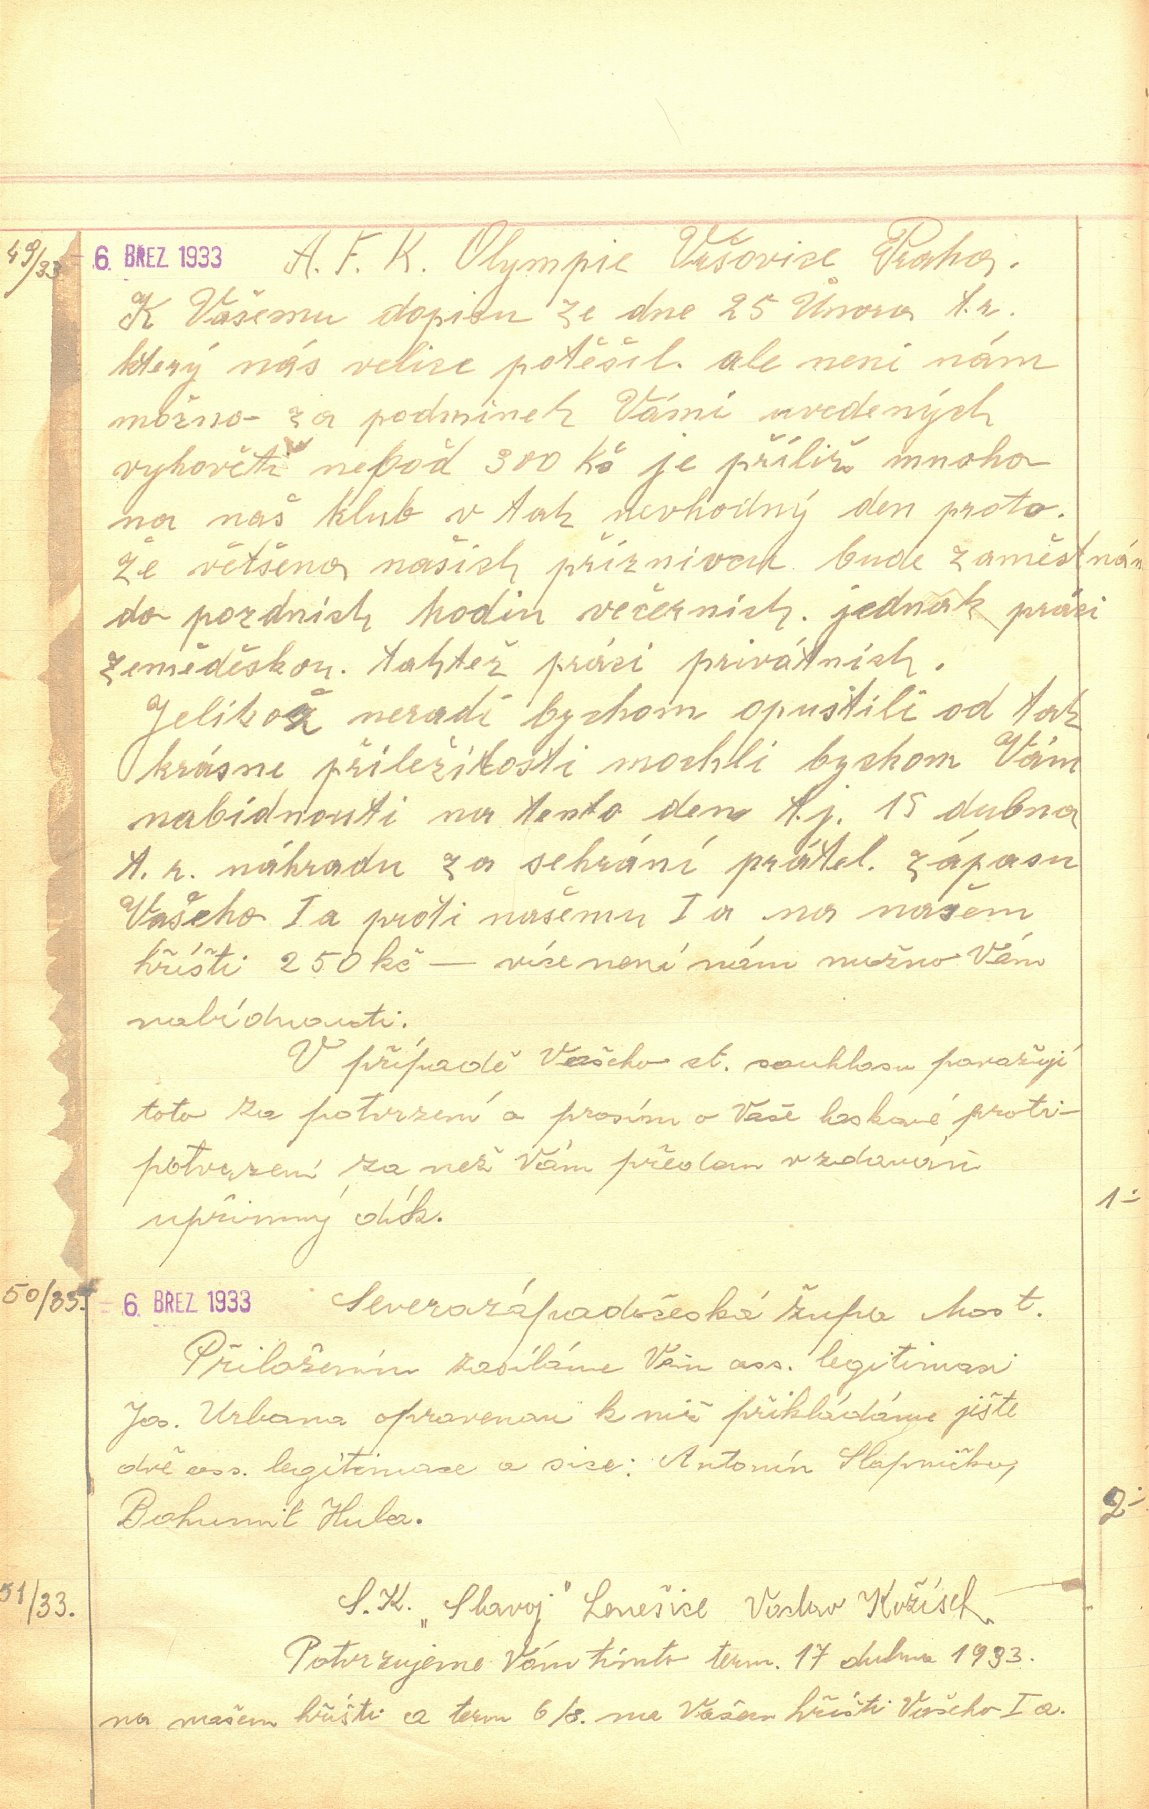 49/33 - 6. BŘEZ 1933 A. F. K. Olympie Vršovice Praha.
K Vašemu dopisu ze dne 25 Února t.r.
který nás velice potěšil. ale neni nám
možno za podmínek Vámi uvedených
vyhověti neboď 300 kč je příliž mnoho
na naš klub v tak nevhodný den proto.
že většena našich příznivcu bude zaměstnán
do pozdnich hodin večernich. jednak práci
zeměděskou. taktež práci privátnich.
Jelikož neradi bychom opustili od tak
krásne příležitosti mochli bychom Vám
nabídnouti na tento den t.j. 15 dubna
t. r. náhradu za sehrání prátel. zápasu
Vašeho I a proti našemu I a na našem
hřišti 250 kč — více není nám možno Vám
nabídnouti.
V případě Vašeho ct. souhlasu považuji
toto za potvrzení a prosím o Vaše laskavé proti-
potvrzení za než Vám předem vzdávám
upřimný dík.
1 -
50/33. - 6. BŘEZ 1933 Severozápadočeská župa Most.
Přiložením zasíláme Vám ass. legitimaci
Jos. Urbana opravenou k níž přikládáme jište
dvě ass. legitimace a sice: Antonín Slapnička,
Bohumil Hula.
2 -
51/33.
S. K. „Slavoj" Lenešice Václav Kožíšek
Potvrzujeme Vám tímto term. 17 dubna 1933.
na našem hřišti a term 6/8. na Vašem hřišti Vašeho I a.